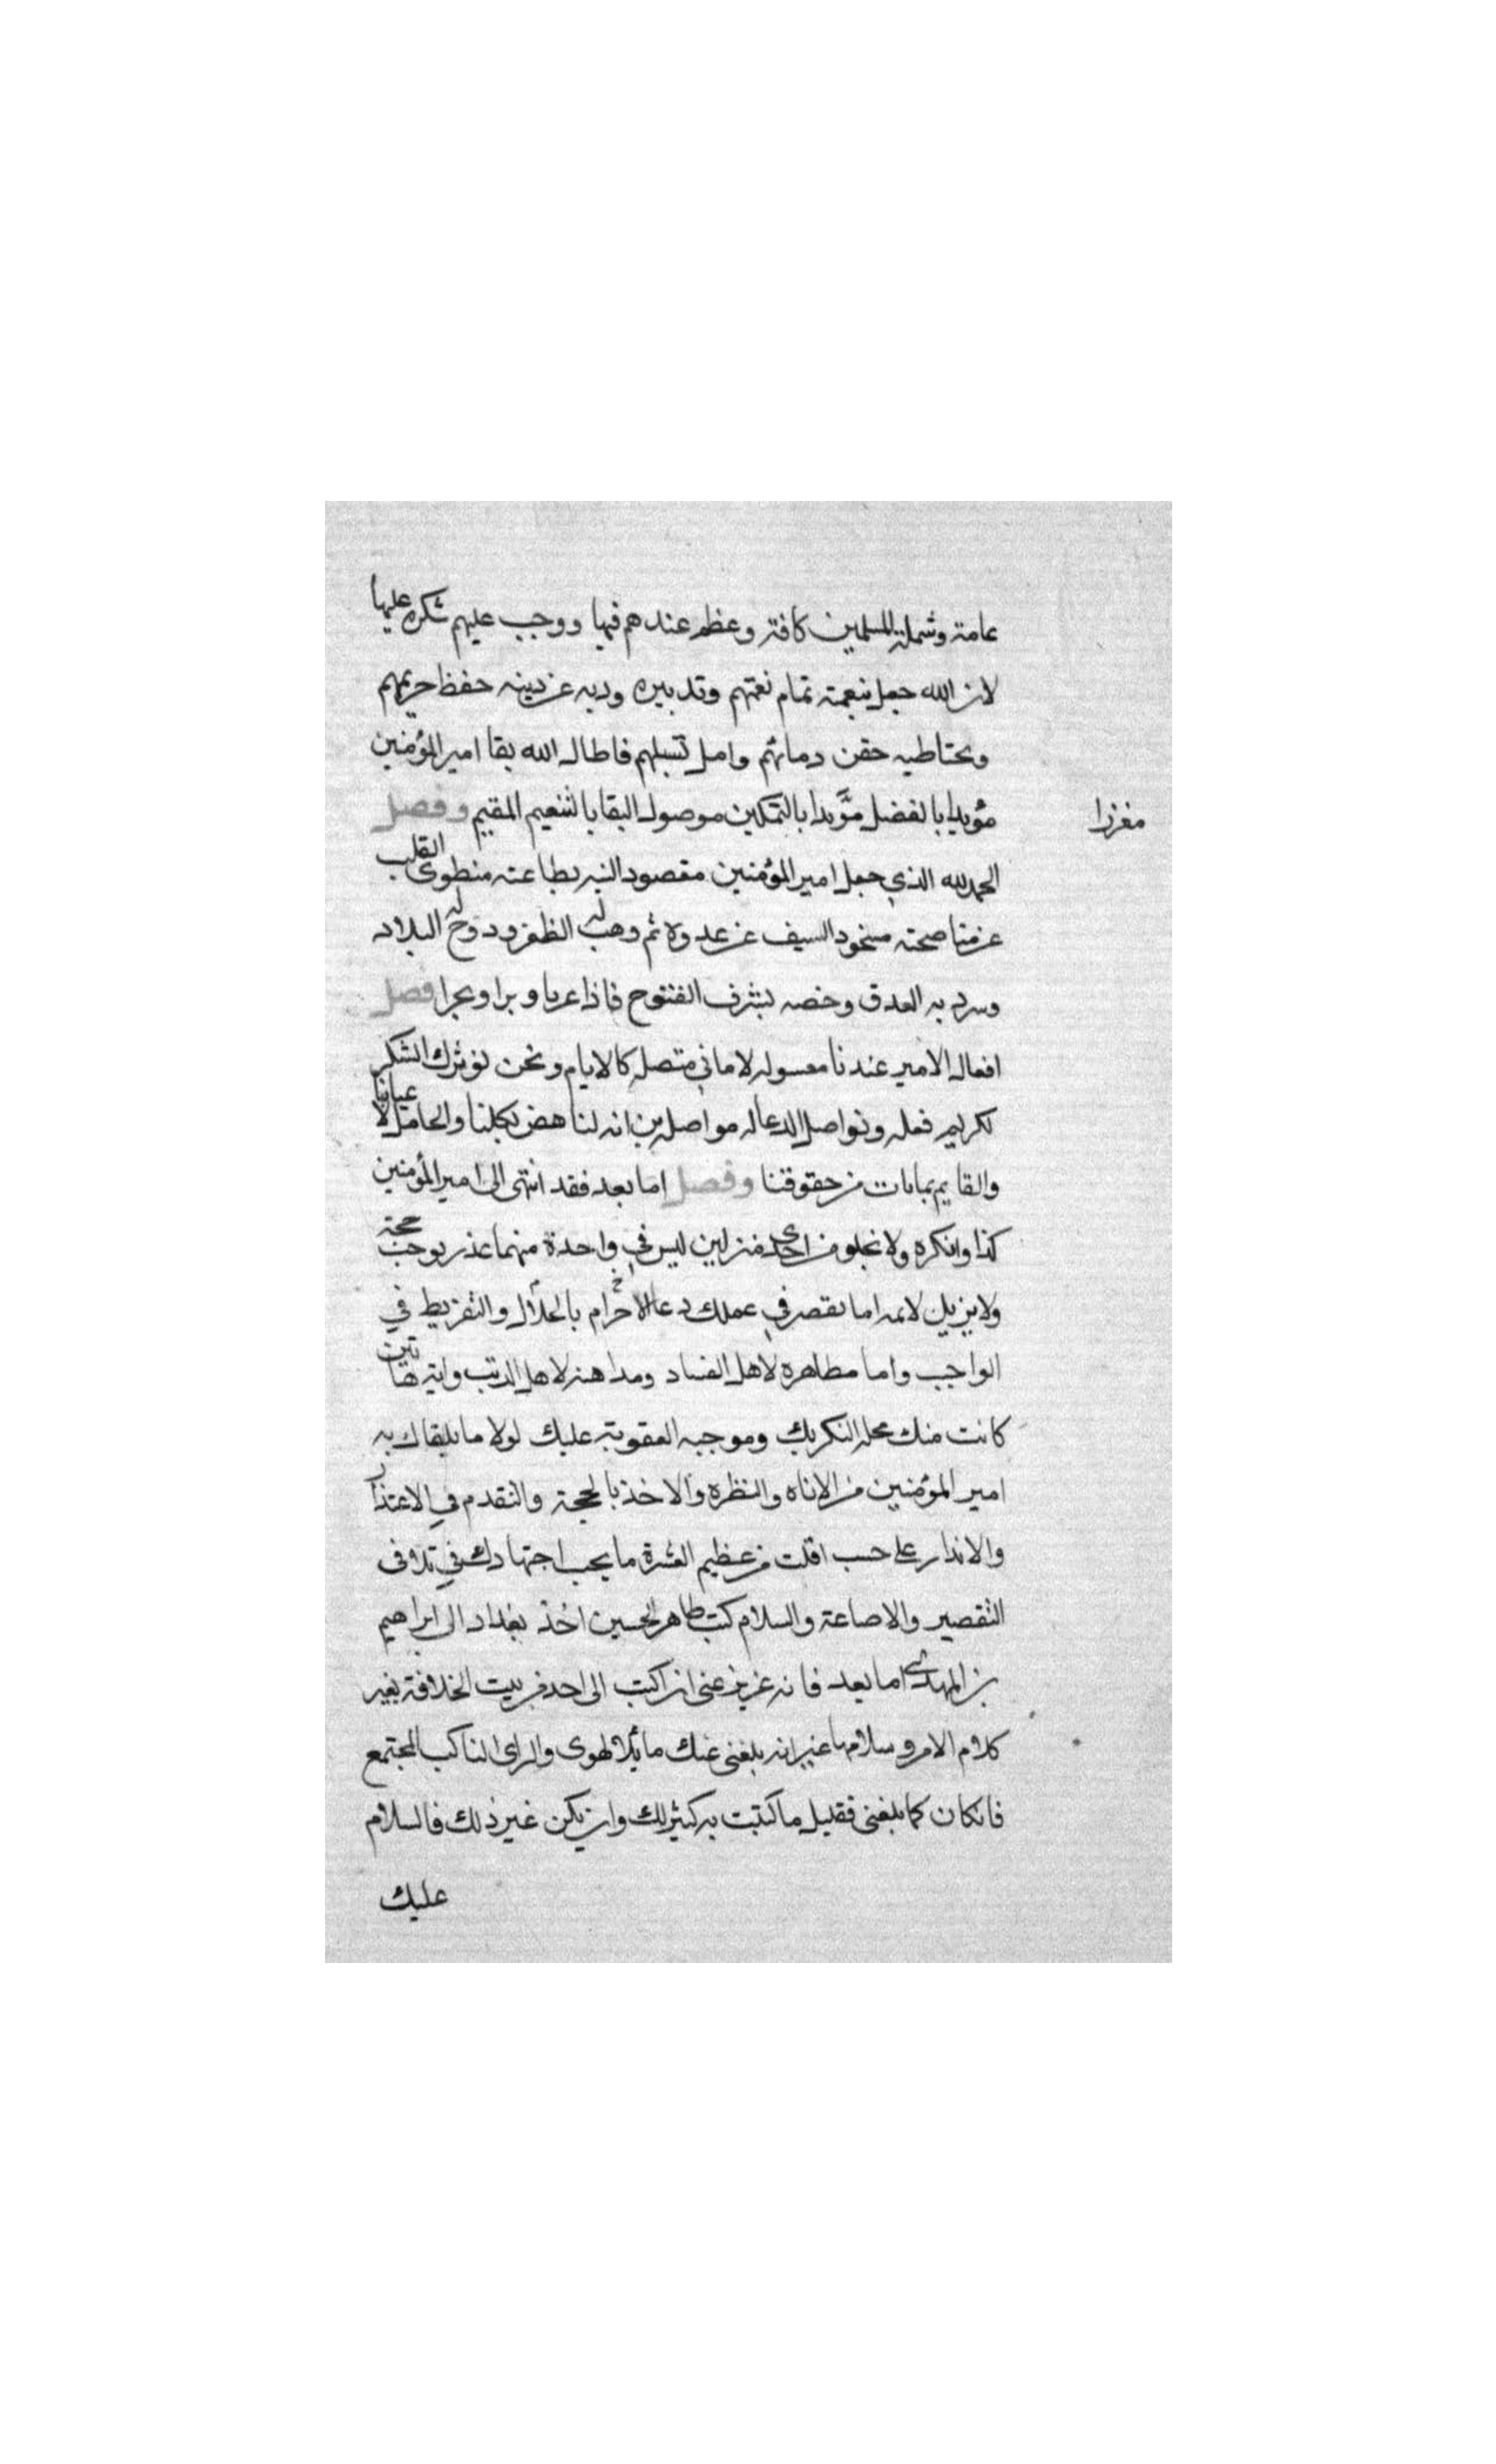 عامة وشملت المسلمين كافة وعظم عندهم فيها ووجب عليهم شكره عليها
لان الله جعل بنعمته تمام نعمتهم وتدبيره وذبه عن دينه حفظ حريمهم
وبحتاطبه حقن دمائهم وامل تسبلهم فاطال الله بقا امير المؤمنين
مؤيدا بالفضل مؤيدا بالتمكين موصول البقا بالنعيم المقيم وفصل
مغرزا
الحمد لله الذي جعل امير المؤمنين مقصود النيه بطاعته منطوى القلب
صحته السيف عن عدوه ثم وهب له الظفر ودوخ له البلاد
وسرد به العدق وخصه بشرف الفتوح فاذا عربا وبرا وبحرا فصل
افعال الامير عندنا معسوله لاماني متصله كالايام ونحن نوثرك الشكر
لكريم فعله ونواصل الدعا له مواصله من انه لناهض بكلنا والحامل لا عبائنا
والقايم بمابات من حقوقنا وفصل اما بعد فقد انتهى الى امير المؤمنين
كذا وانكره ولا تخلو من احدى منزلين ليس في واحدة منهما عذر يوجب حجة
ولا يزيل لايمه اما تقصر في عملك دعا للاحرام بالحلال والتفريط في
الواجب واما مظاهره لاهل الفساد ومداهنه لاهل الريب واية هاتين
كانت منك محله النكر بك وموجبه العقوبة عليك لولا ما يلقاك به
امير المؤمنين من الاناه والنظره والاخذ بالحجة والتقدم في الاعتذار
والانذار على حسب اقلت من عظيم العثرة ما يجب اجتهادك في تلافى
التقصير والاضاعة والسلام كتب طاهر الحسين اخذ بغداد الى ابراهيم
بن المهدى اما بعد فانه عزيز عنى ان اكتب الى احد من بيت الخلافة بغير
كلام الامره وسلامها غير انه بلغنى عنك مائلا لهوى والراى الناكب المجتمع
فان كان كما بلغنى فقليل ما كتبت به كثير لك وان يكن غير ذلك فالسلام
عليك